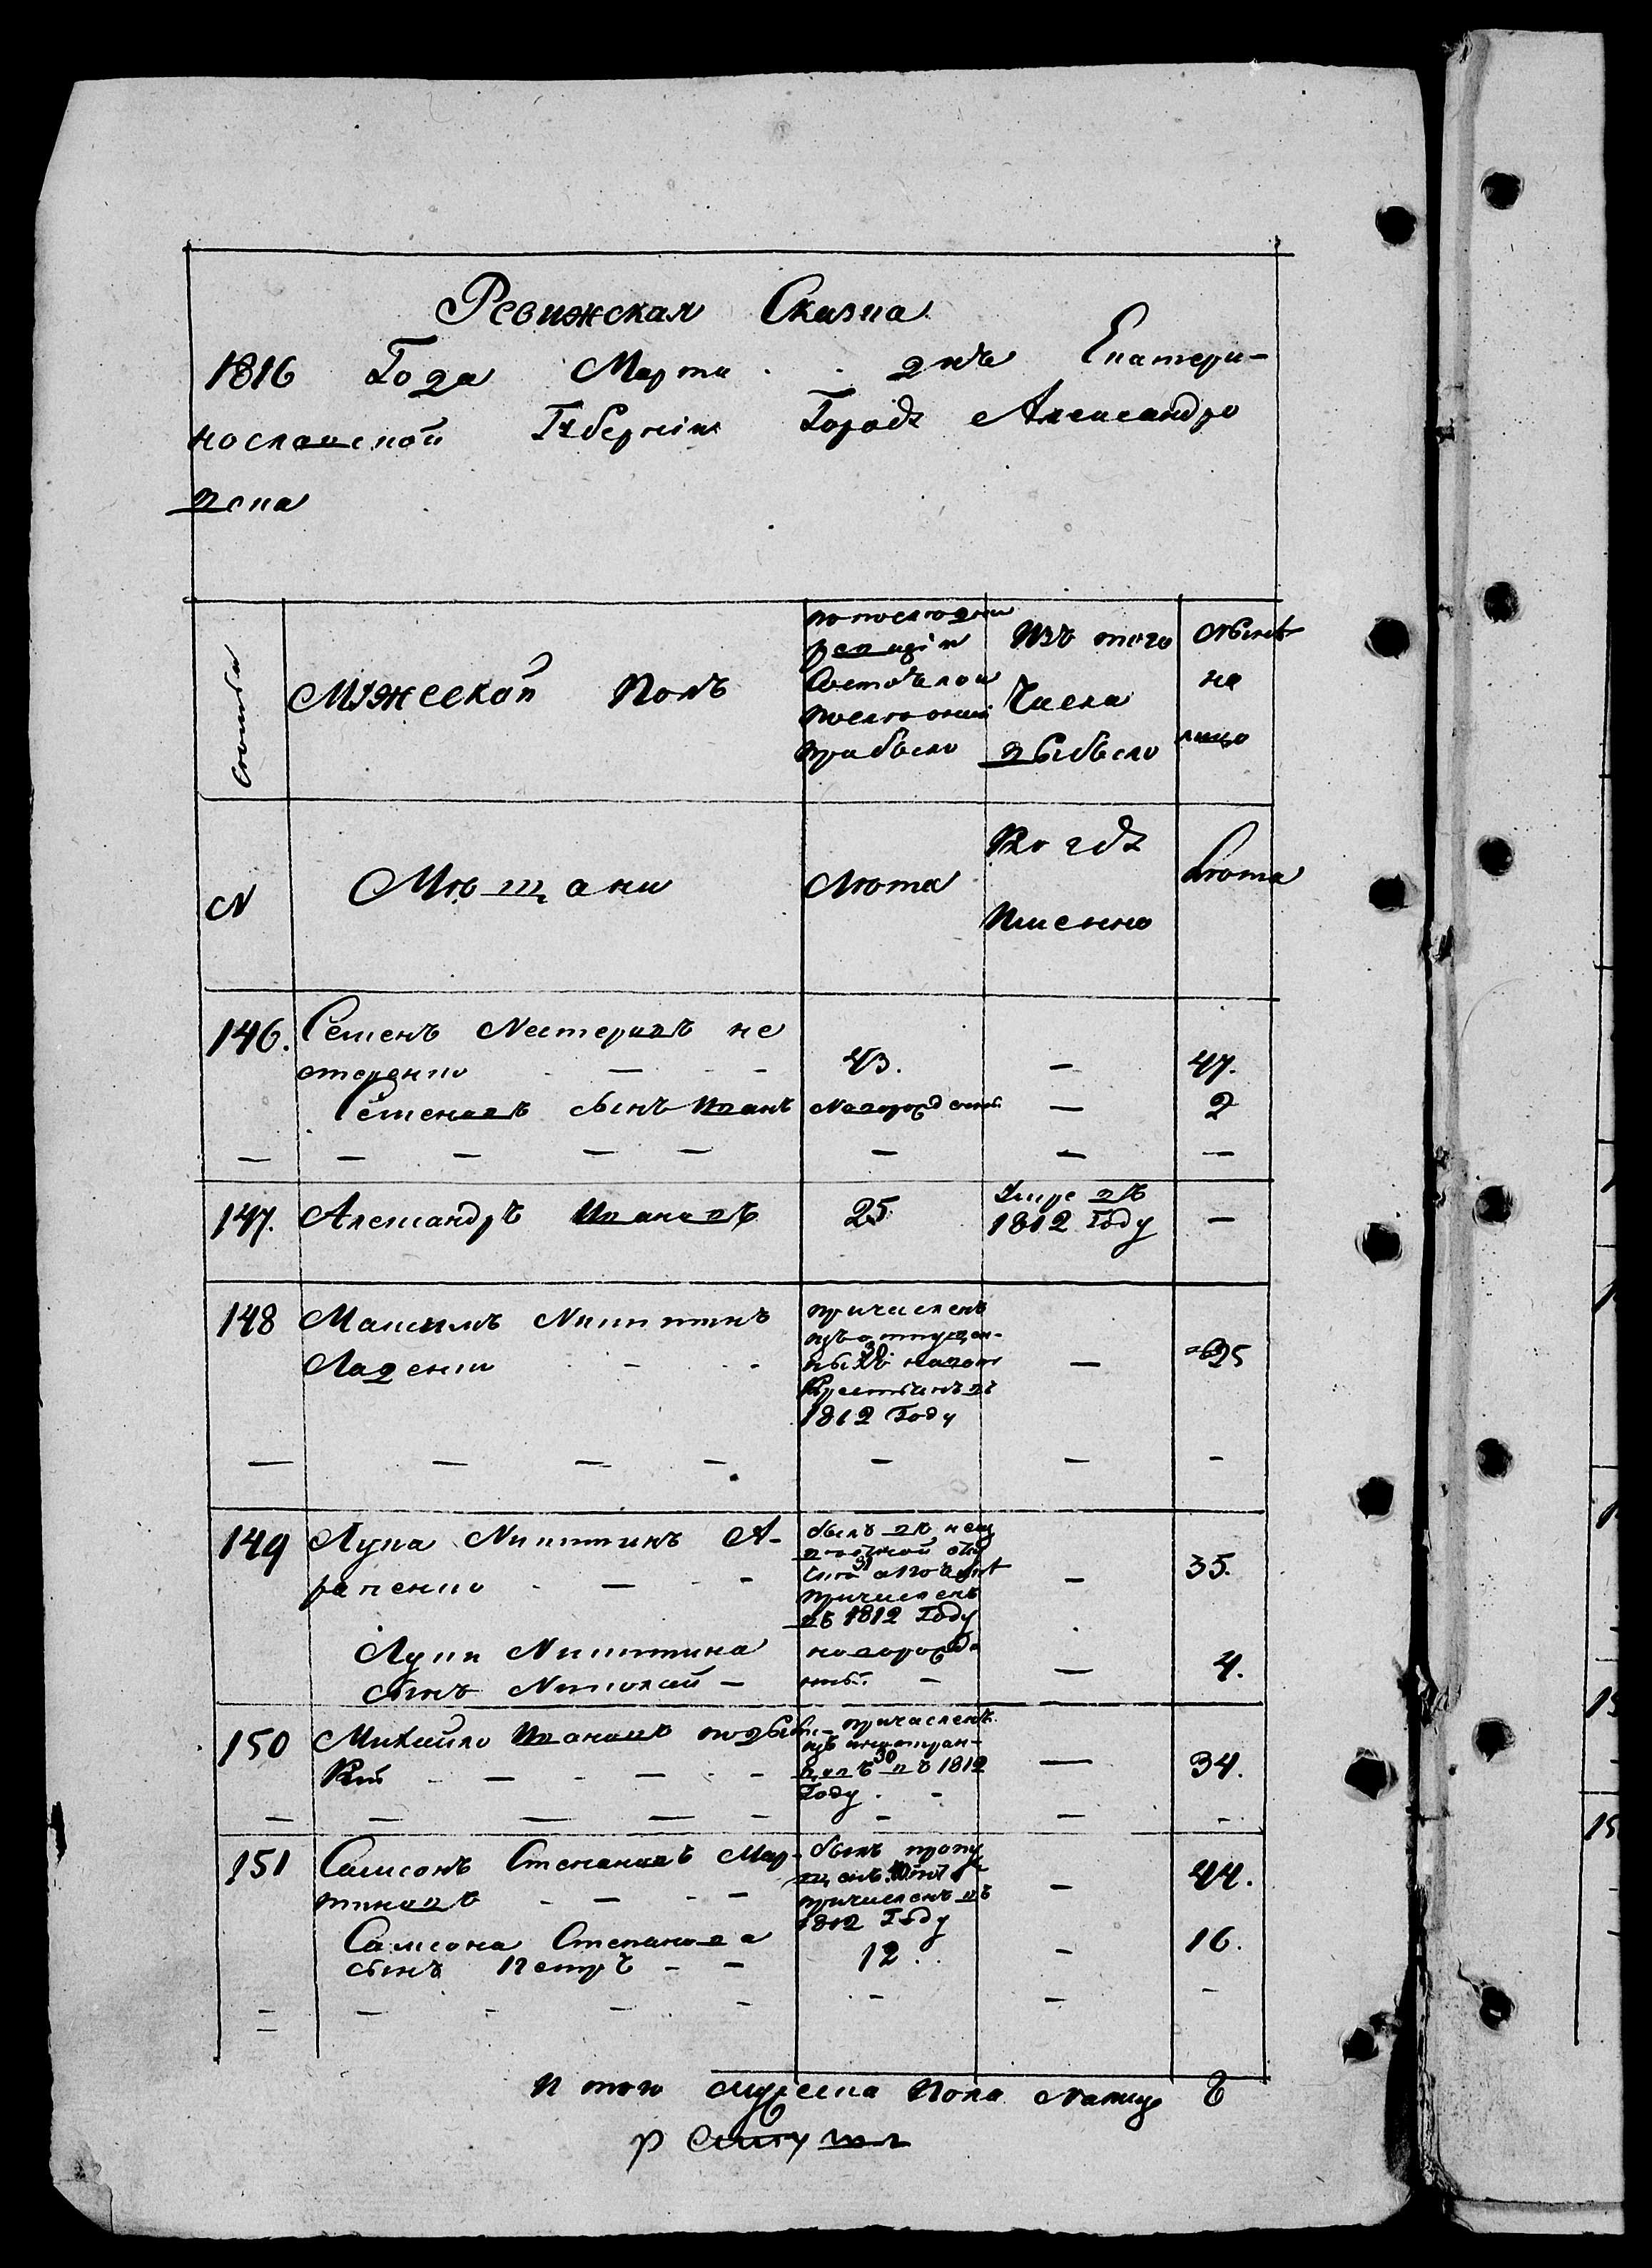 Ревижская Сказка
1816 Года Марта дня Екатери-
нославской Губерніи Городъ Александро
вска
Мужеской Полъ
по последни
ревизіи
состояло и
после оний
прибыло
Изъ того
Числа
выбыло
ныне
на
лицо
N
Мещани
Лета
Когда
Именно
Лета
146. Семенъ Нестеровъ не
стеренко — 43. — 47.
Семеновъ сынъ Иванъ новорожденой — 2
— — — — — — — —
147. Александръ Ивановъ 25 Умре въ
1812 году —
148 Максимъ Никитинъ
Лазенко
причисленъ
изъ отпущен-
ныхъ 30 на волю
Крестьянъ въ
1812 Году
— 35
— — — — — — —
149 Лука Никитинъ А-
раченко
былъ въ
31
причисленъ
въ 1812 Году
— 35.
Луки Никитина
сынъ Николай —
новорожде
ный. — — 4.
150 Михайло Ивановъ
кий
причисленъ
изъ иностран-
цовъ 30 въ 1812
Году. —
— 34.
— — — — — — — —
151 Самсонъ Степановъ Мар-
тиновъ
былъ пропу
щенъ 40 летъ
причисленъ въ
1812 Году
— 44.
Самсона Степанова
сынъ Петръ — — 12. — 16.
Итого мужеска пола налицо 8